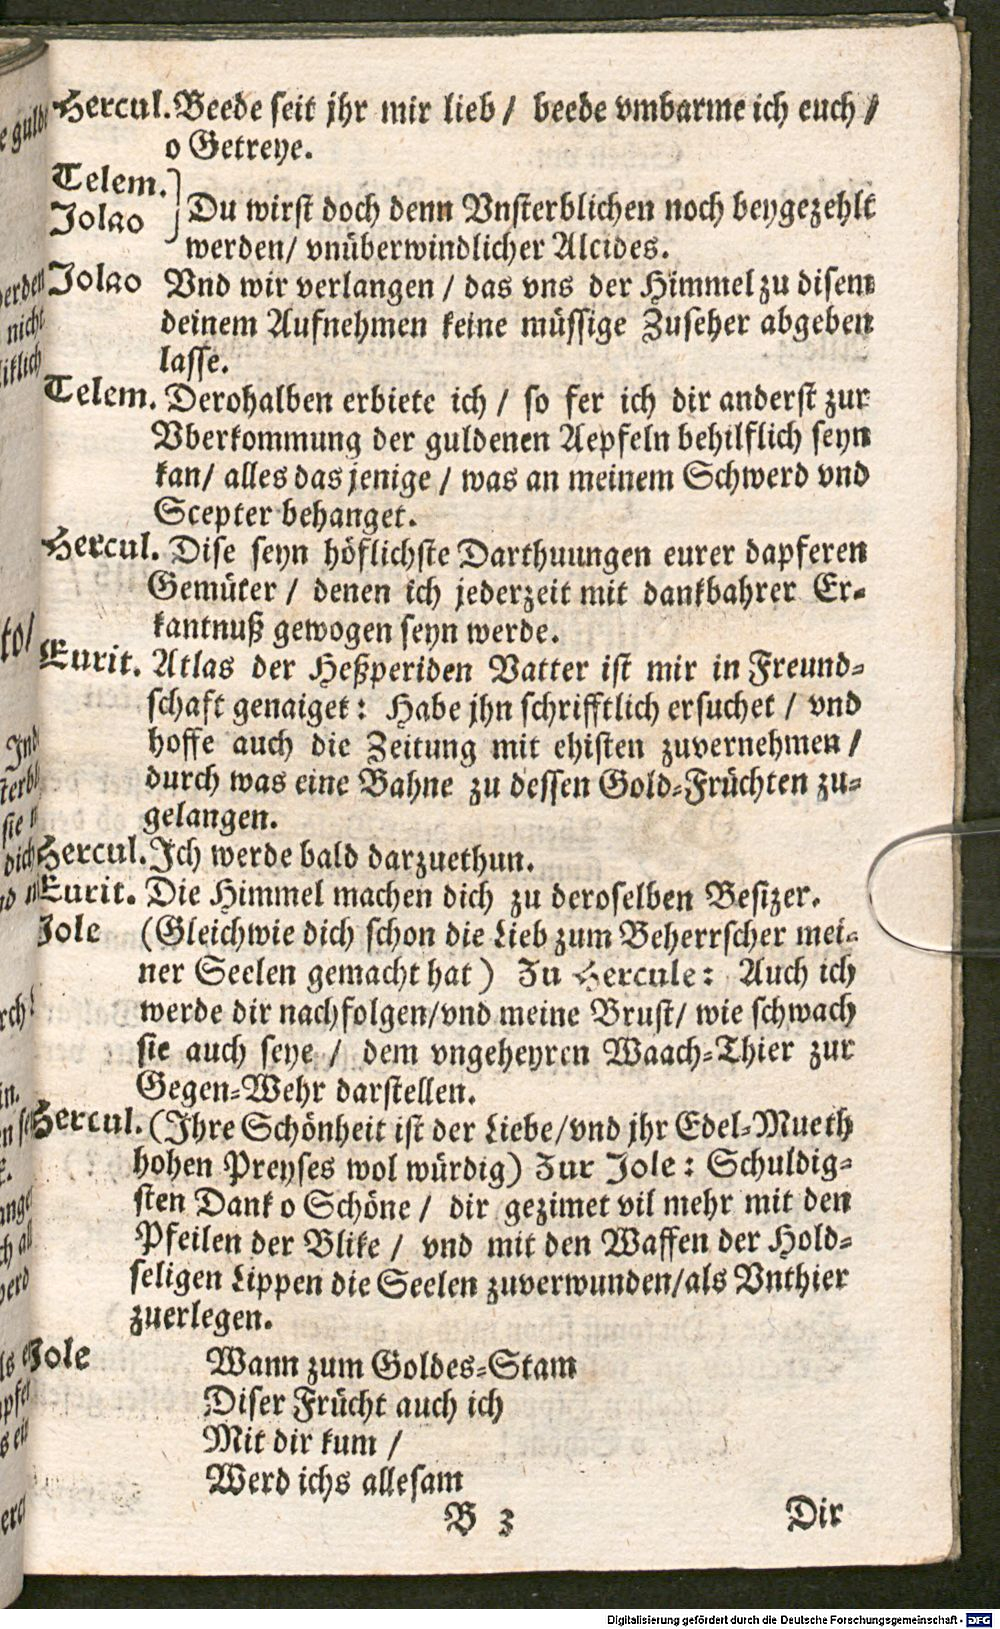 Hercul. Beede seit jhr mir lieb / beede vmbarme ich euch /
o Getreye.
Telem.
Jolao
Du wirst doch denn Vnsterblichen noch beygezehlt
werden/ vnüberwindlicher Alcides.
Jolao Vnd wir verlangen / das vns der Himmel zu disem
deinem Aufnehmen keine müssige Zuseher abgeben
lasse.
Telem. Derohalben erbiete ich / so fer ich dir anderst zur
Vberkommung der guldenen Aepfeln behilflich seyn
kan/ alles das jenige / was an meinem Schwerd vnd
Scepter behanget.
Hercul. Dise seyn höflichste Darthuungen eurer dapferen
Gemüter / denen ich jederzeit mit dankbahrer Er-
kantnuß gewogen seyn werde.
Eurit. Atlas der Heßperiden Vatter ist mir in Freund-
schaft genaiget: Habe jhn schrifftlich ersuchet / vnd
hoffe auch die Zeitung mit ehisten zuvernehmen /
durch was eine Bahne zu dessen Gold-Früchten zu-
gelangen.
Hercul. Ich werde bald darzuethun.
Eurit. Die Himmel machen dich zu deroselben Besizer.
Jole (Gleichwie dich schon die Lieb zum Beherrscher mei-
ner Seelen gemacht hat) Zu Hercule: Auch ich
werde dir nachfolgen/vnd meine Brust/ wie schwach
sie auch seye / dem vngeheyren Waach-Thier zur
Gegen-Wehr darstellen.
Hercul. (Ihre Schönheit ist der Liebe/vnd jhr Edel-Mueth
hohen Preyses wol würdig) Zur Jole: Schuldig-
sten Dank o Schöne / dir gezimet vil mehr mit den
Pfeilen der Blike / vnd mit den Waffen der Hold-
seligen Lippen die Seelen zuverwunden/als Vnthier
zuerlegen.
Jole Wann zum Goldes-Stam
Diser Frücht auch ich
Mit dir kum /
Werd ichs allesam
B 3 Dir
Digitalisierung gefördert durch die Deutsche Forschungsgemeinschaft - DFG